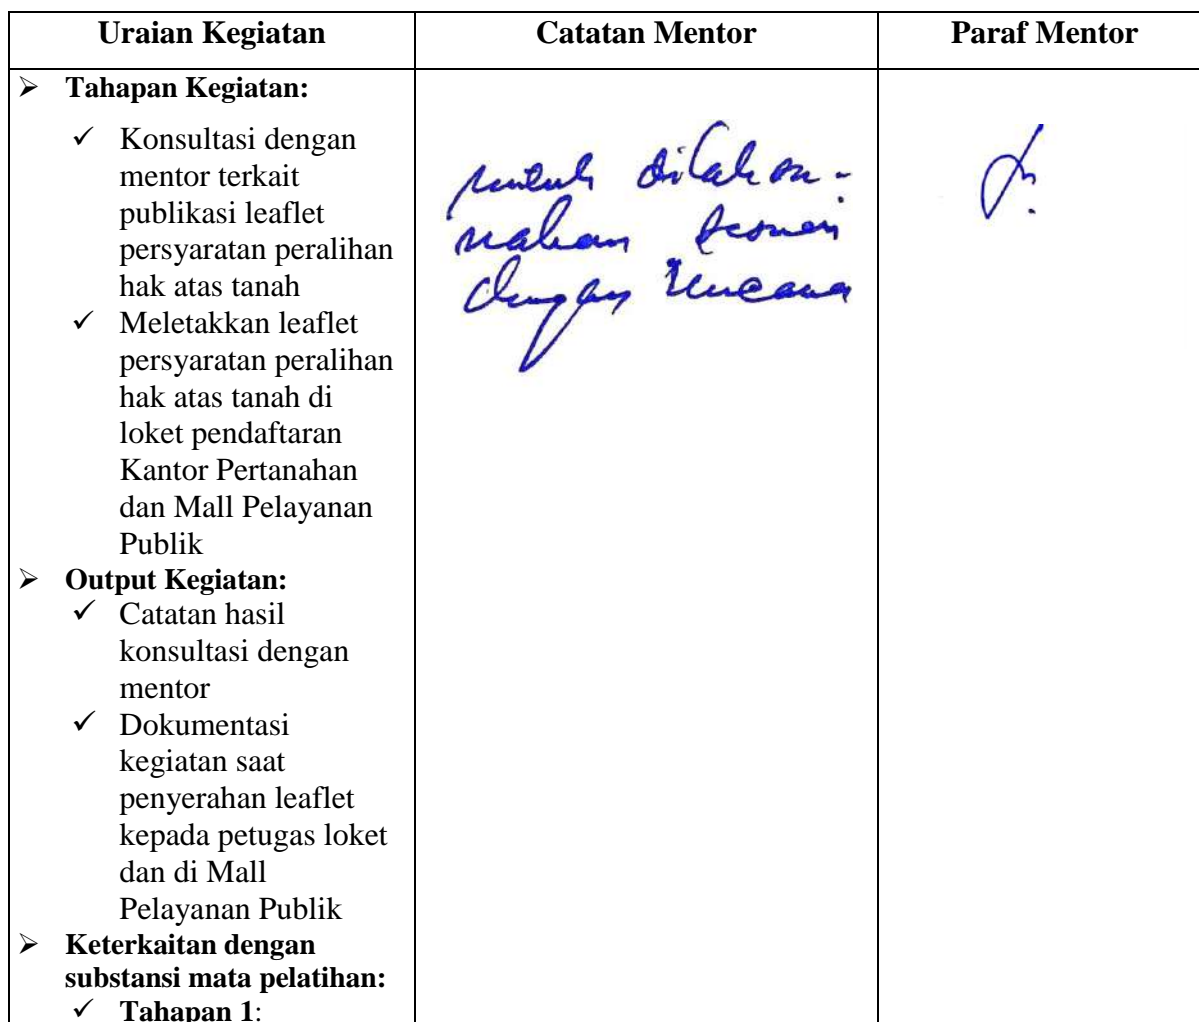 Uraian Kegiatan
Catatan Mentor
Paraf Mentor
➢ Tahapan Kegiatan:
✓ Konsultasi dengan
mentor terkait
publikasi leaflet
persyaratan peralihan
hak atas tanah
✓ Meletakkan leaflet
persyaratan peralihan
hak atas tanah di
loket pendaftaran
Kantor Pertanahan
dan Mall Pelayanan
Publik
➢ Output Kegiatan:
✓ Catatan hasil
konsultasi dengan
mentor
✓ Dokumentasi
kegiatan saat
penyerahan leaflet
kepada petugas loket
dan di Mall
Pelayanan Publik
➢ Keterkaitan dengan
substansi mata pelatihan:
✓ Tahapan 1:
untuk dilaksa-
nakan sesuai
dengan rencana